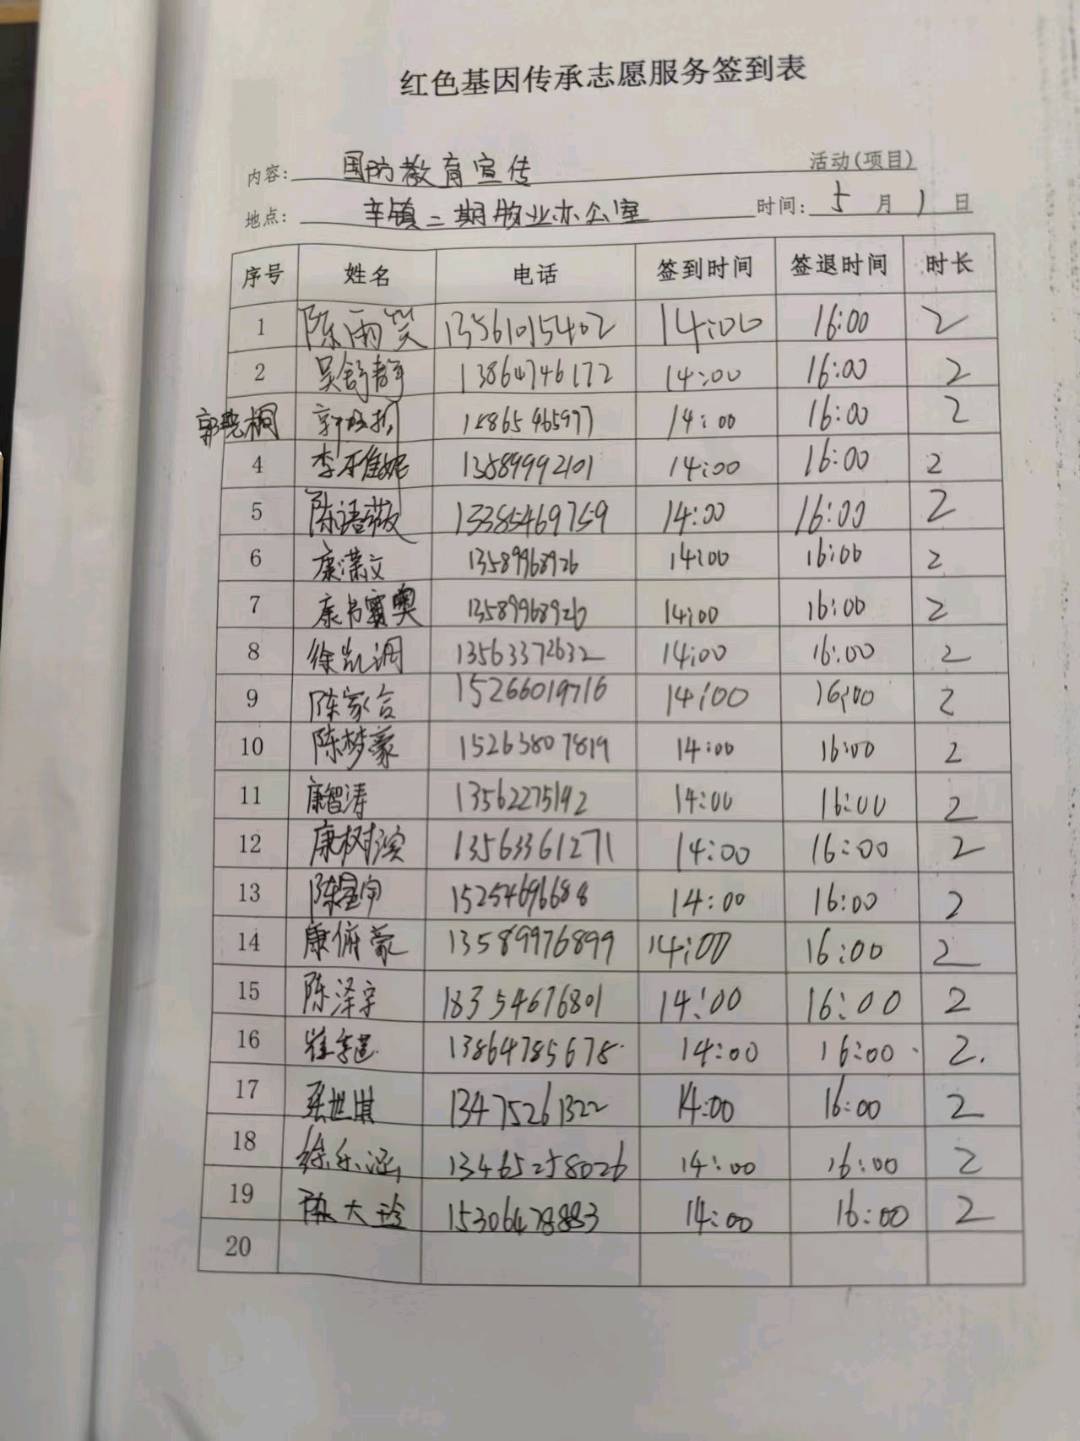 红色基因传承志愿服务签到表
内容: 国防教育宣传 活动(项目)
地点: 辛镇二期物业办公室 时间: 5月1日
序号 姓名 电话 签到时间 签退时间 时长
1 陈雨笑 13561015402 14:00 16:00 2
2 吴舒静 13864746172 14:00 16:00 2
郭晓桐 14:00 16:00 2
4 13589992101 14:00 16:00 2
5 陈语薇 13385469759 14:00 16:00 2
6 康潇文 13589968926 14:00 16:00 2
7 13589968926 14:00 16:00 2
8 徐凯调 13563372632 14:00 16:00 2
9 陈家合 15266019716 14:00 16:00 2
10 陈梦豪 15263807819 14:00 16:00 2
11 康智涛 13562275192 14:00 16:00 2
12 康树滨 13563361271 14:00 16:00 2
13 陈星宇 15254696688 14:00 16:00 2
14 康俯豪 13589976899 14:00 16:00 2
15 陈泽宇 18354676801 14:00 16:00 2
16 13864785678 14:00 16:00 2.
17 张世淇 13475261322 14:00 16:00 2
18 徐乐涵 13465258026 14:00 16:00 2
19 陈大玲 15306478883 14:00 16:00 2
20